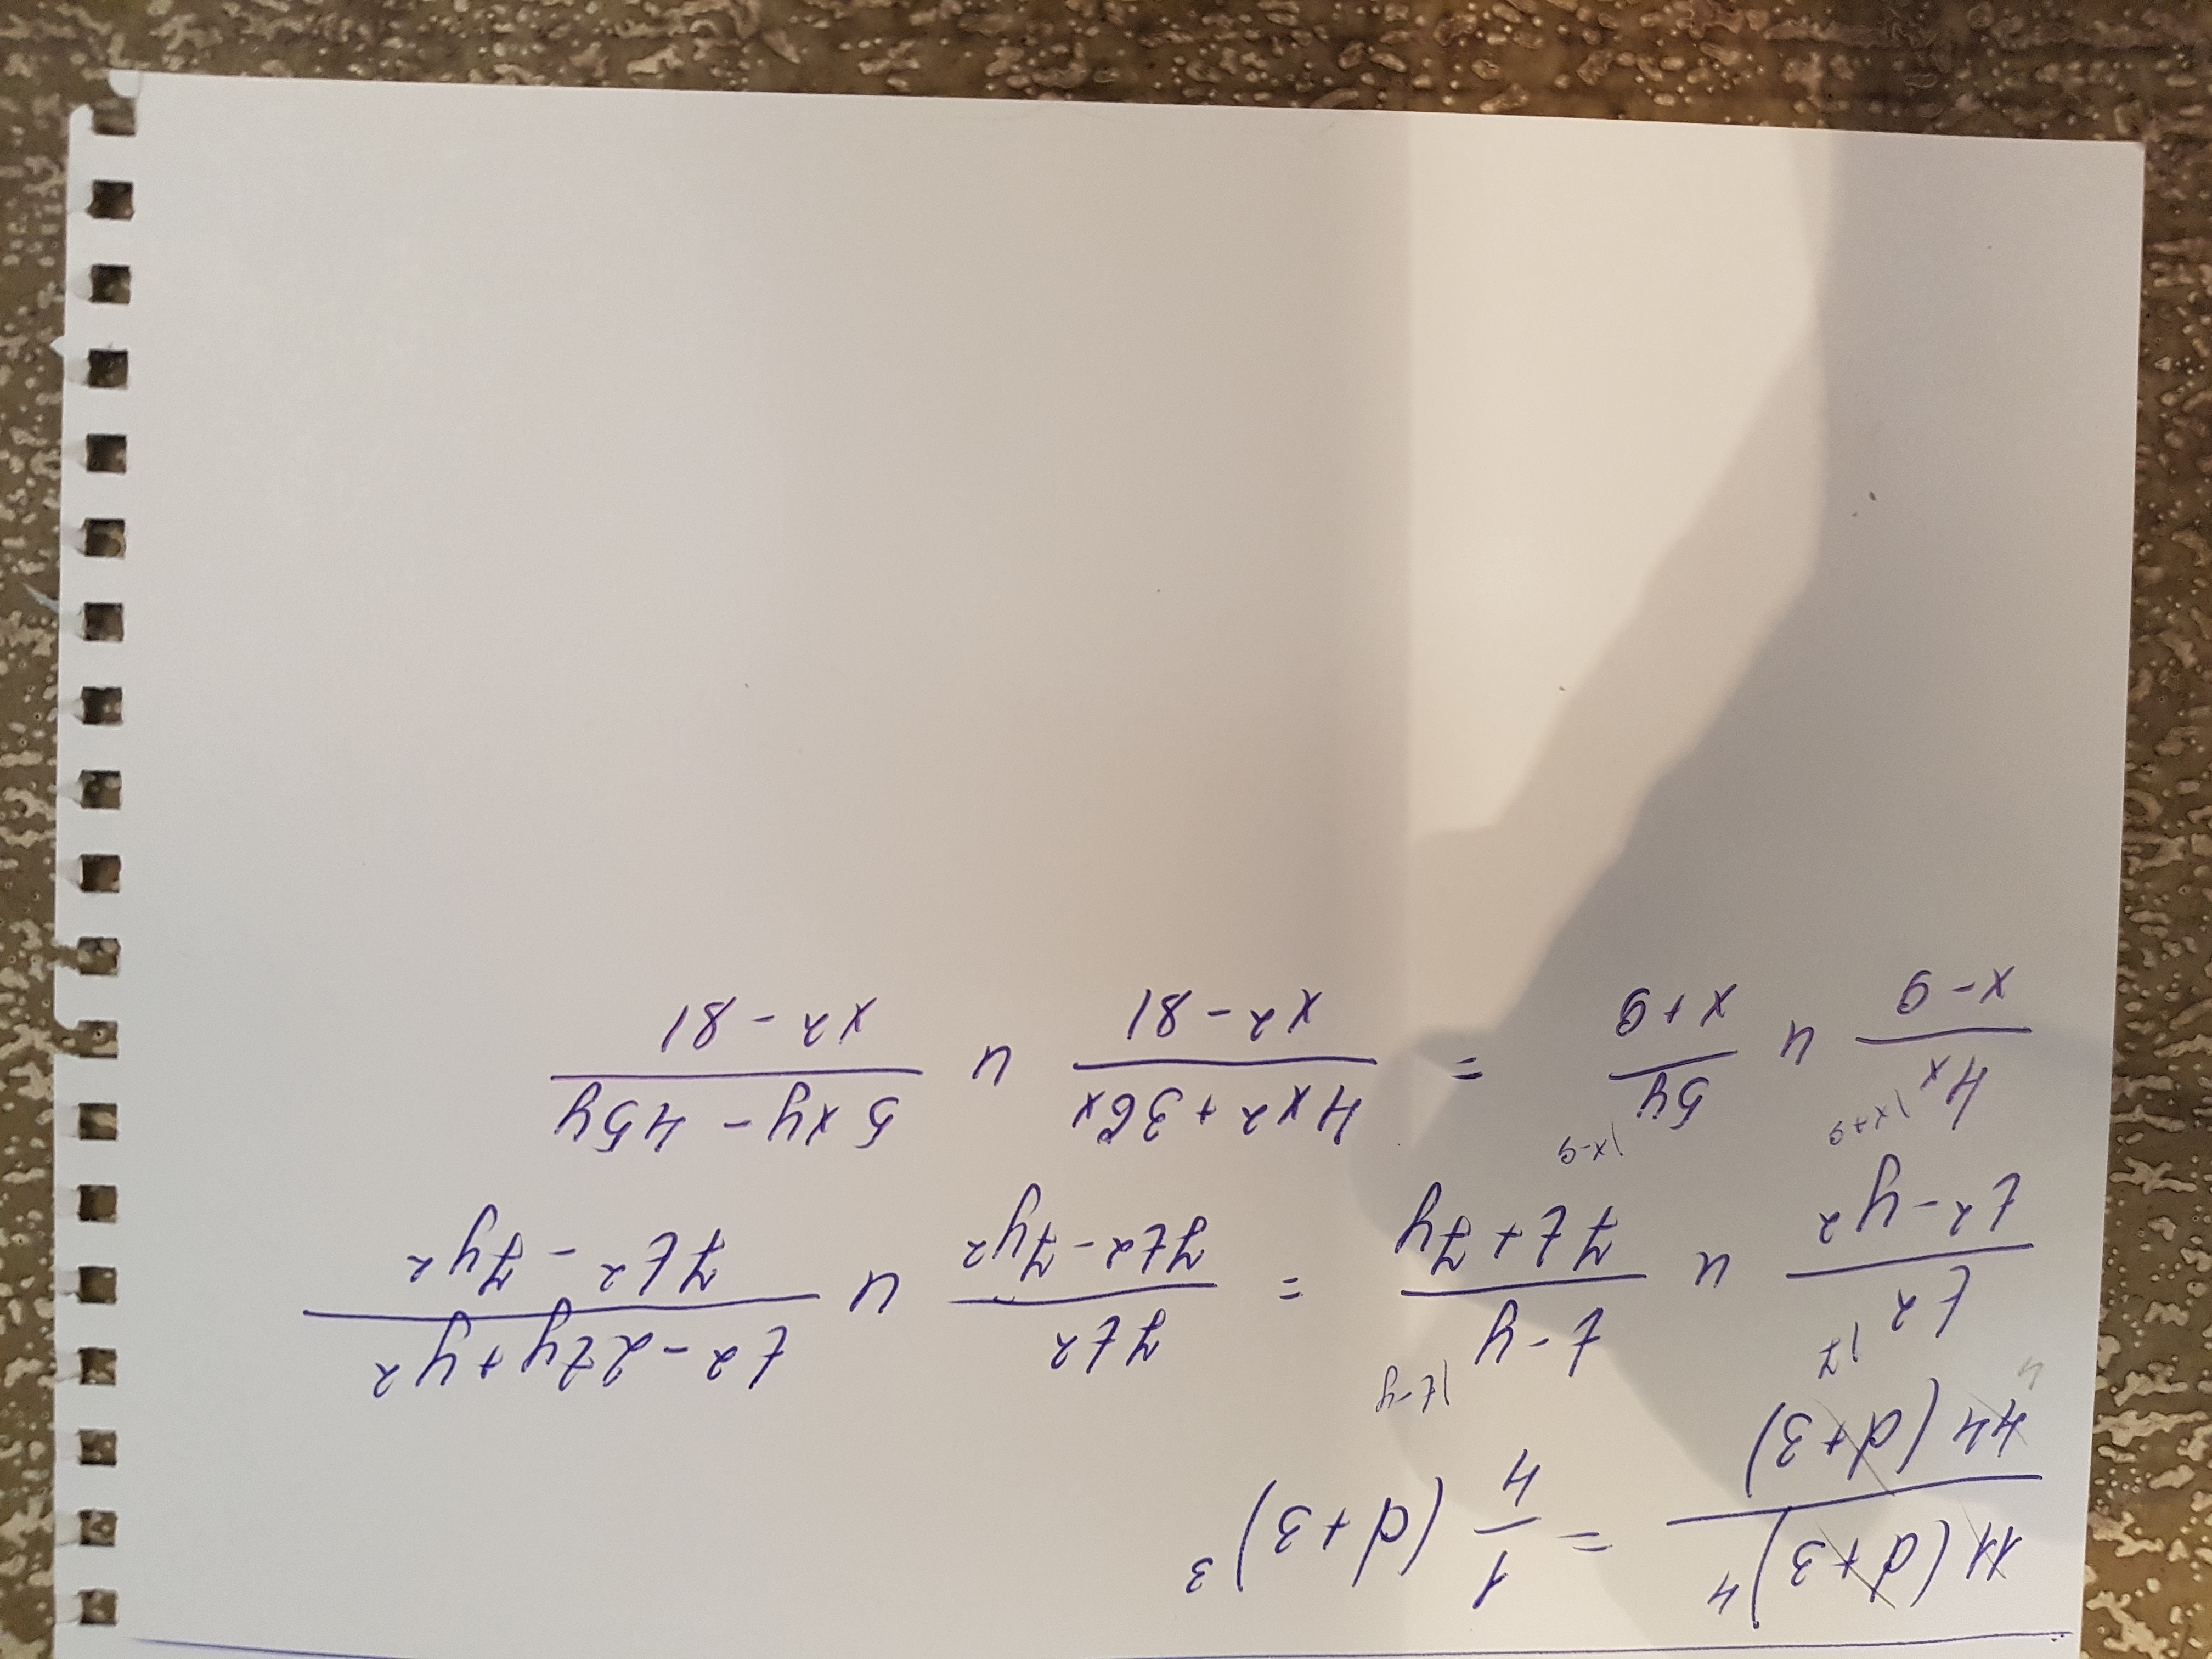 11(d+3)^4 / 44(d+3) 4 = 1/4 (d+3)^3
t2 |7 / t2-y2 и t-y |t-y / 7t+7y = 7t2 / 7t2-7y2 и t2-2ty+y2 / 7t2-7y2
4x |x+9 / x-9 и 5y |x-9 / x+9 = 4x2+36x / x2-81 и 5xy-45y / x2-81